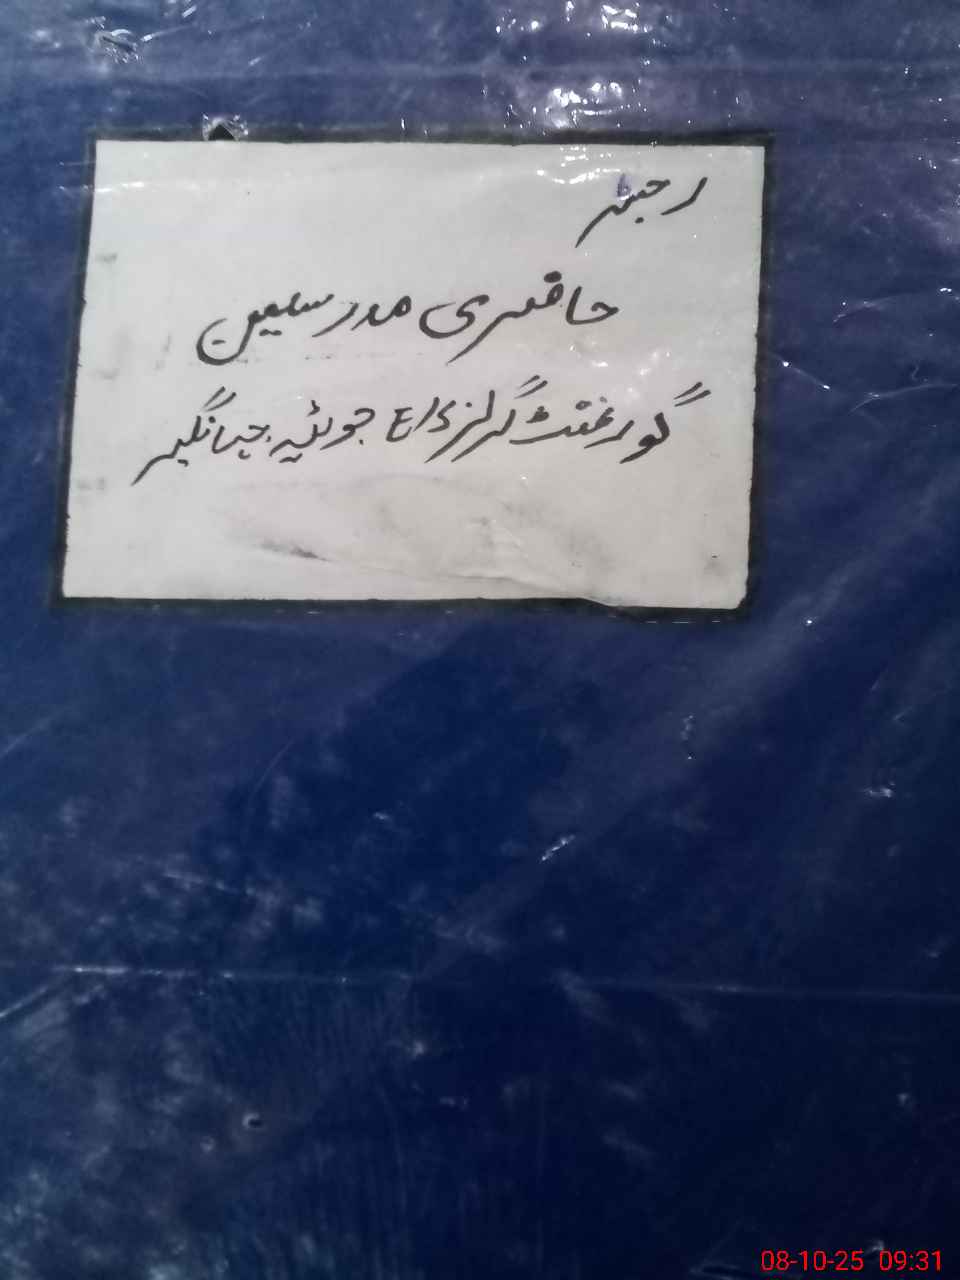 رجسٹر
حاضری مدرسین
گورنمنٹ گرلز ہائی جوئیہ جہانگیر
08-10-25 09:31